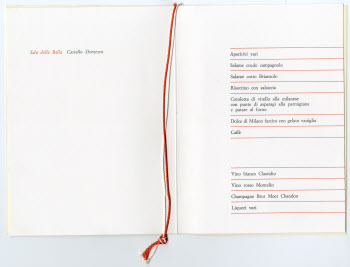 Sala della Balla Castello Sforzesco
Aperitivi vari
Salame crudo campagnolo
Salame cotto Brianzolo
Risottino con salsiccia
Costoletta di vitello alla milanese
con punte di asparagi alla parmigiana
e patate al forno
Dolce di Milano farcito con gelato vaniglia
Caffè
Vino bianco Clastidio
Vino rosso Montello
Champagne Brut Moet Chandon
Liquori vari